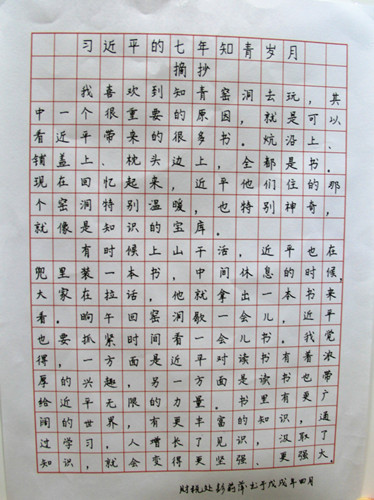 习近平的七年知青岁月
摘抄
我喜欢到知青窑洞去玩，其
中一个很重要的原因，就是可以
看近平带来的很多书。炕沿上、
铺盖上、枕头边上，全都是书。
现在回忆起来，近平他们住的那
个窑洞特别温暖，也特别神奇，
就像是知识的宝库。
有时候上山干活，近平也在
兜里装一本书，中间休息的时候，
大家在拉话，他就拿出一本书来
看。晌午回窑洞歇一会儿，近平
也要抓紧时间看一会儿书。我觉
得，一方面是近平对读书有着浓
厚的兴趣，另一方面是读书也带
给近平无限的力量。书里有更广
阔的世界，有更丰富的知识，通
过学习，人增长了见识，汲取了
知识，就会变得更坚强、更强大。
财税处 彭 萍 书于戊戌年四月